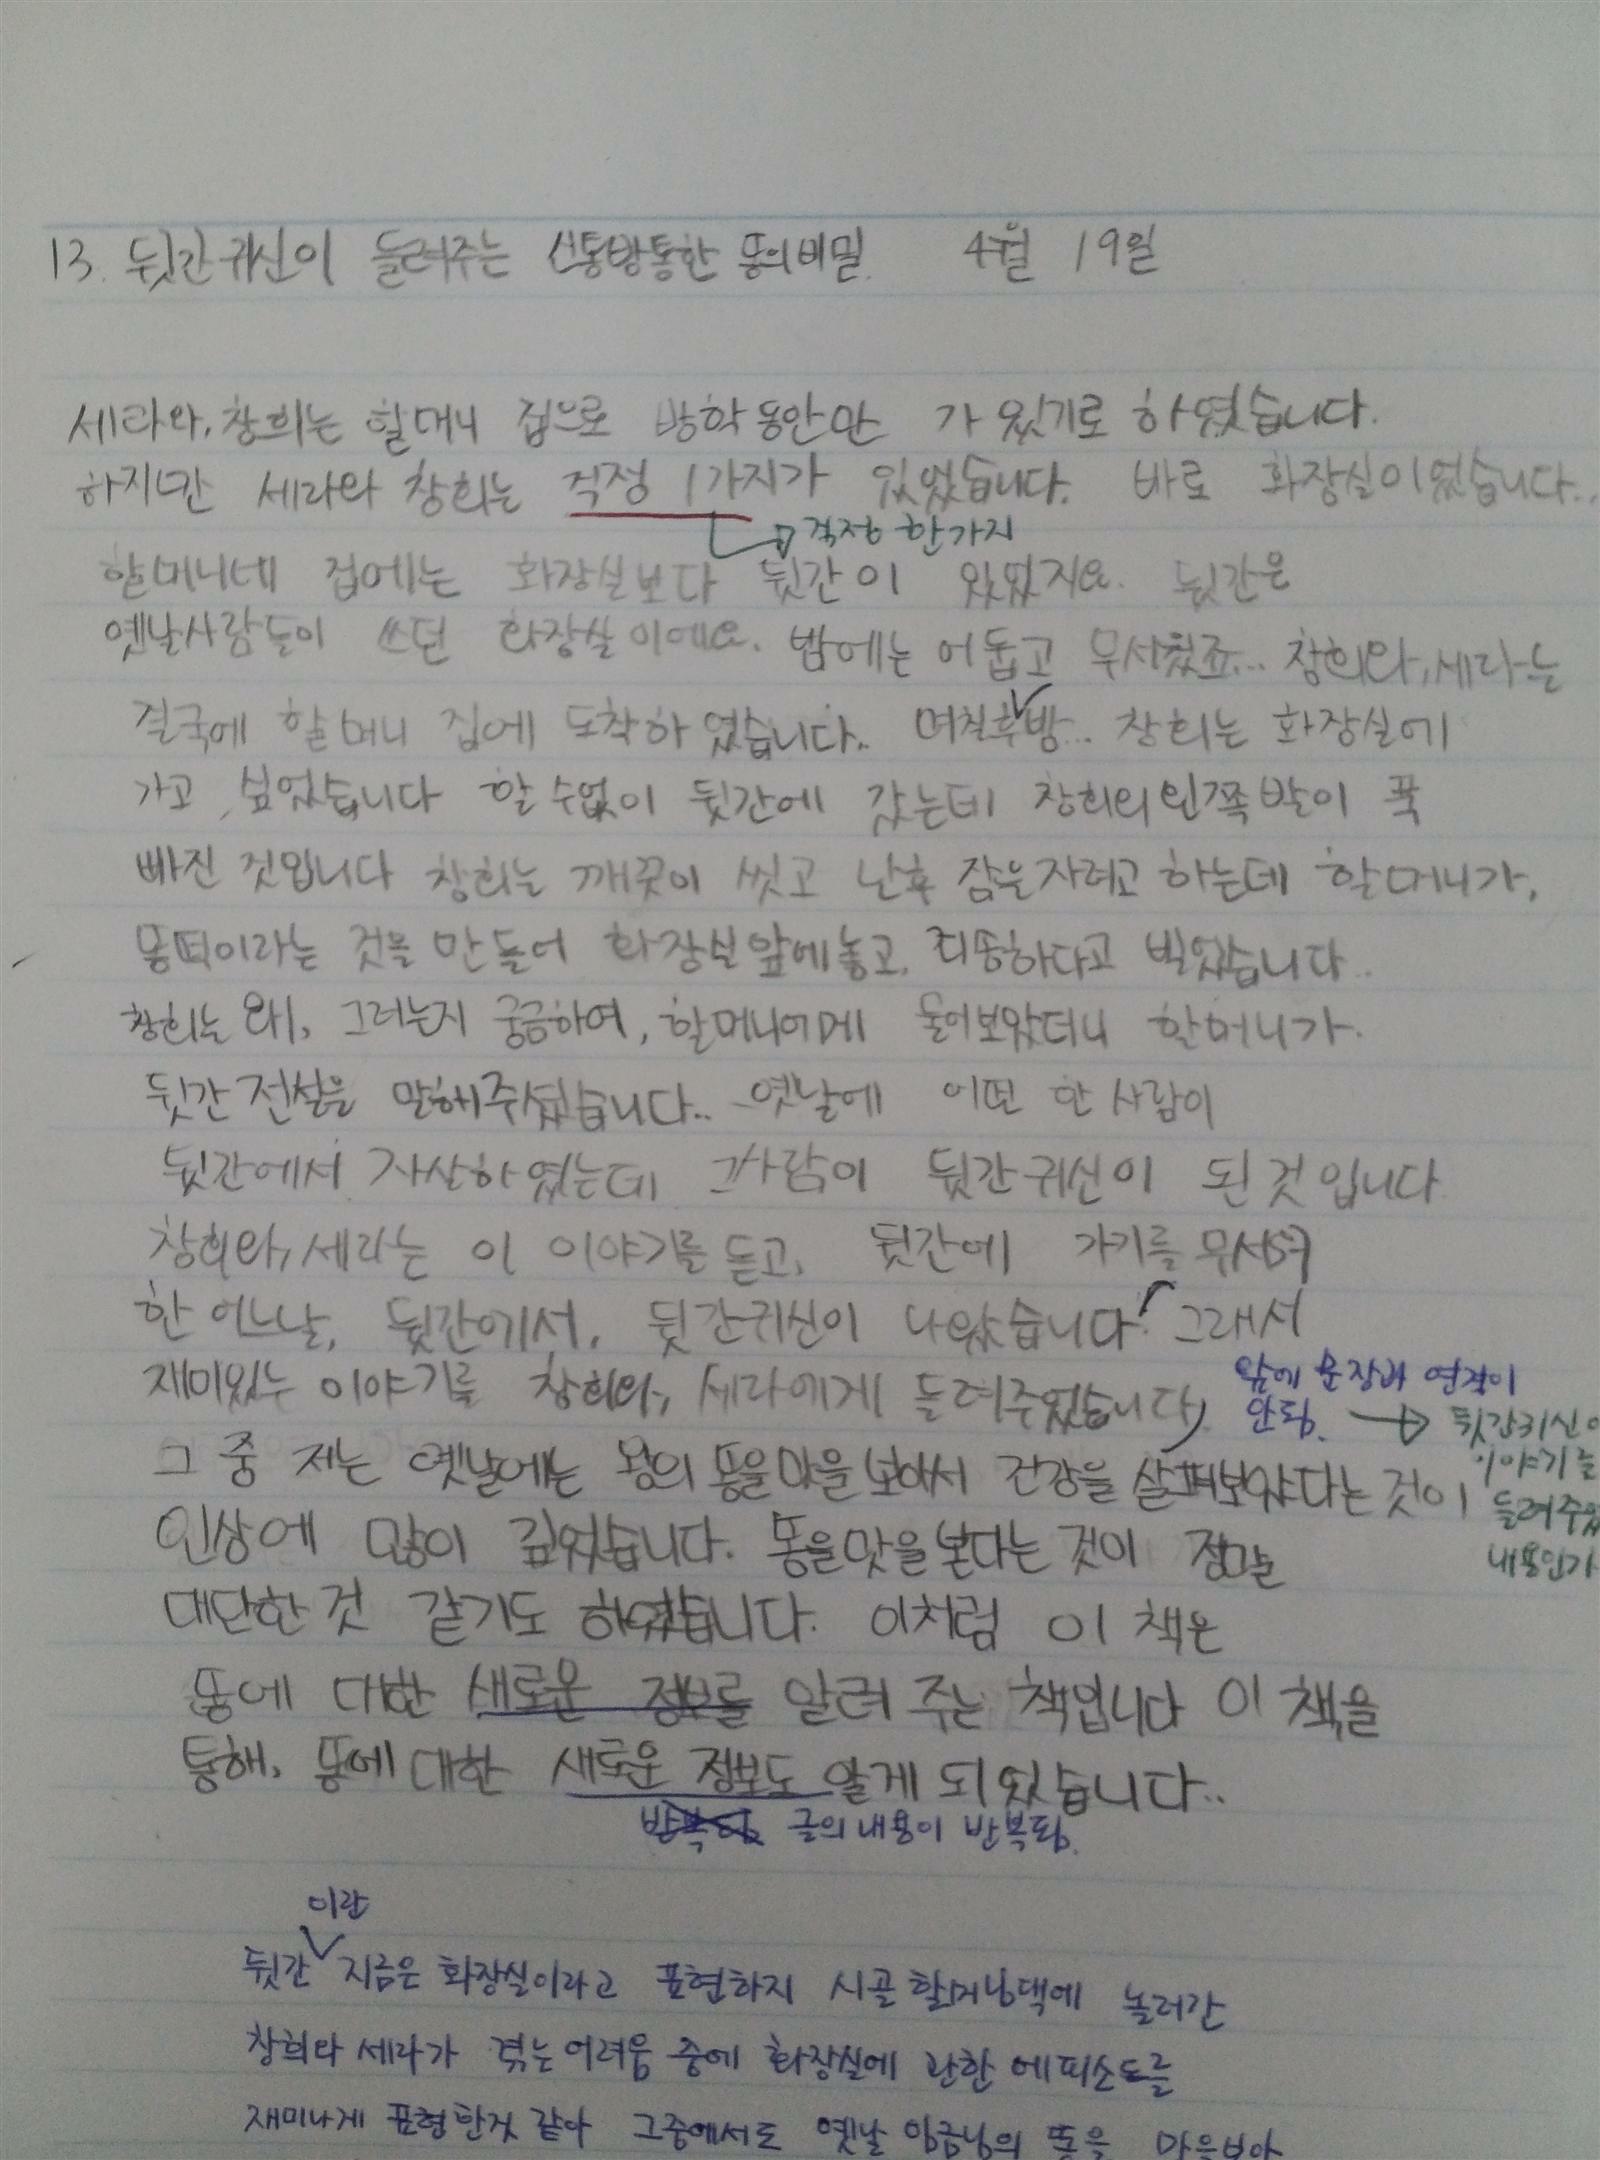 13. 뒷간귀신이 들려주는 신통방통한 똥의비밀. 4월 19일
세라와, 창희는 할머니 집으로 방학동안만 가 있기로 하였습니다.
하지만 세라와 창희는 걱정 1가지가 있었습니다. 바로 화장실이었습니다..
걱정 한가지
할머니네 집에는 화장실보다 뒷간이 있었지요. 뒷간은
옛날사람들이 쓰던 화장실이에요. 밤에는 어둡고 무서웠죠... 창희와, 세라는
결국에 할머니 집에 도착하였습니다.. 며칠후밤... 창희는 화장실에
가고, 싶었습니다 할수없이 뒷간에 갔는데 창희의 왼쪽발이 푹
빠진 것입니다 창희는 깨끗이 씻고 난후 잠을자려고 하는데 할머니가,
똥떡이라는 것을 만들어 화장실앞에놓고, 죄송하다고 빌었습니다..
창희는 왜, 그러는지 궁금하여, 할머니에게 물어보았더니 할머니가.
뒷간 전설을 말해주셨습니다.. 옛날에 어떤 한 사람이
뒷간에서 자살하였는데 그사람이 뒷간귀신이 된것입니다
창희와, 세라는 이 이야기를 듣고, 뒷간에 가기를 무서워
한 어느날, 뒷간에서, 뒷간귀신이 나왔습니다. 그래서
재미있는 이야기를 창희와, 세라에게 들려주었습니다.
앞에 문장과 연결이
안됨. → 뒷간귀신이
이야기를
들려주었
내용인가
그 중 저는 옛날에는 왕의 똥을 마을 보아서 건강을 살펴보았다는 것이
인상에 많이 깊었습니다. 똥을맛을본다는 것이 정말
대단한것 같기도 하였습니다. 이처럼 이 책은
똥에 대한 새로운 정보를 알려 주는 책입니다 이 책을
통해, 똥에 대한 새로운 정보도 알게 되었습니다..
글의 내용이 반복됨.
이란
뒷간 지금은 화장실이라고 표현하지 시골 할머님댁에 놀러간
창희와 세라가 겪는 어려움 중에 화장실에 관한 에피소드를
재미나게 표현한것 같아 그중에서도 옛날 임금님의 똥을 마을보아